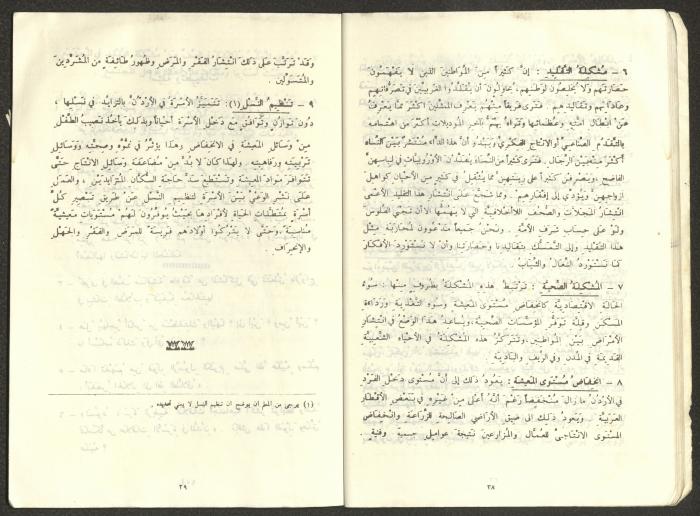 ٦ – مشكلة التقليد : إن كثيراً من المواطنين الذين لا يتفهمون
حضارتهم ولا يخلصون لوطنهم، يحاولون أن يقلدوا الغربيين في تصرفاتهم
وعاداتهم وتقاليدهم. فترى فريقاً منهم يعرف الممثلين أكثر مما يعرف
عن أبطال أمته وعظمائها وقواد يهتم بآخر الموديلات أكثر من اهتمامه
بالتقدم الصناعي أو الانتاج الفكري ويبدو أن هذا الداء مستشر بين النساء
أكثر منه بين الرجال. فترى كثيراً من النساء يقلدن الأوروبيات في لباسهن
الفاضح، ويصرفن كثيراً على زينتهن مما يثقل في كثير من الأحيان كواهل
ازواجهن ويؤدي إلى إفقارهم. ومما شجع على انتشار هذا التقليد الأعمى
انتشار المجلات والصحف اللاأخلاقية التي لا يهمها الا أن تجني الفلوس
ولو على حساب شرف الأمة. ونحن جميعاً مدعوون لمحاربة مثل
هذا التقليد وإلى التمسك بتقاليدنا وحضارتنا وأن لا نستورد الأفكار
كما نستورد النعال والثياب.
٧ – المشكلة الصحية : ترتبط هذه المشكلة بظروف منها : سوء
الحالة الاقتصادية كانخفاض مستوى المعيشة وسوء التغذية ورداءة
المسكن وقلة توفر المؤسسات الصحية، ويساعد هذا الوضع في انتشار
الأمراض بين المواطنين. وتتركز هذه المشكلة في الأحياء الشعبية
القديمة في المدن وفي الريف والبادية.
٨ – انخفاض مستوى المعيشة : يعود ذلك إلى أن مستوى دخل الفرد
في الأردن ما زال منخفضاً رغم أنه أعلى من غيره في بعض الأقطار
العربية. ويعود ذلك الى ضيق الأراضي الصالحة للزراعة وانخفاض
المستوى الانتاجي للعمال والمزارعين نتيجة عوامل جسمية وفنية.
٢٨
وقد ترتب على ذلك انتشار الفقر والمرض وظهور طائفة من المشردين
والمتسولين.
٩ – تنظيم النسل (١) : تتميز الأسرة في الأردن بالتزايد في نسلها،
دون توازن وتوافق مع دخل الأسرة أحياناً وبذلك يأخذ نصيب الطفل
من وسائل المعيشة في الانخفاض وهذا يؤثر في نموه وصحته ووسائل
تربيته ورفاهيته. ولهذا كان لا بد من مضاعفة وسائل الانتاج حتى
تتوافر مواد المعيشة وتستطيع سد حاجة السكان المتزايدين، والعمل
على نشر الوعي بين الأسرة لتنظيم النسل عن طريق تبصير كل
أسرة بمتطلبات الحياة لأفرادها بحيث يوفرون لهم مستويات معيشية
مناسبة، وحتى لا يتركوا أولادهم فريسة للمرض والفقر والجهل
والإنحراف.
(١) يرجى من المعلم ان يوضح ان تنظيم النسل لا يعني تحديده.
٢٩